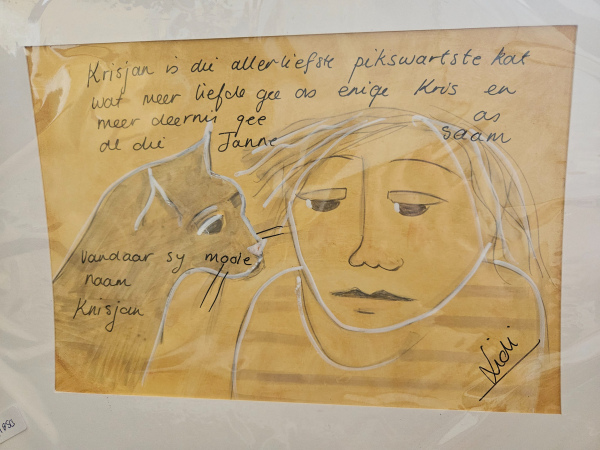 Krisjan is die allerliefste pikswartste kat
wat meer liefde gee as enige Kris en
meer deernis gee as
al die Janne saam
Vandaar sy mooie
naam
Krisjan
Lidi